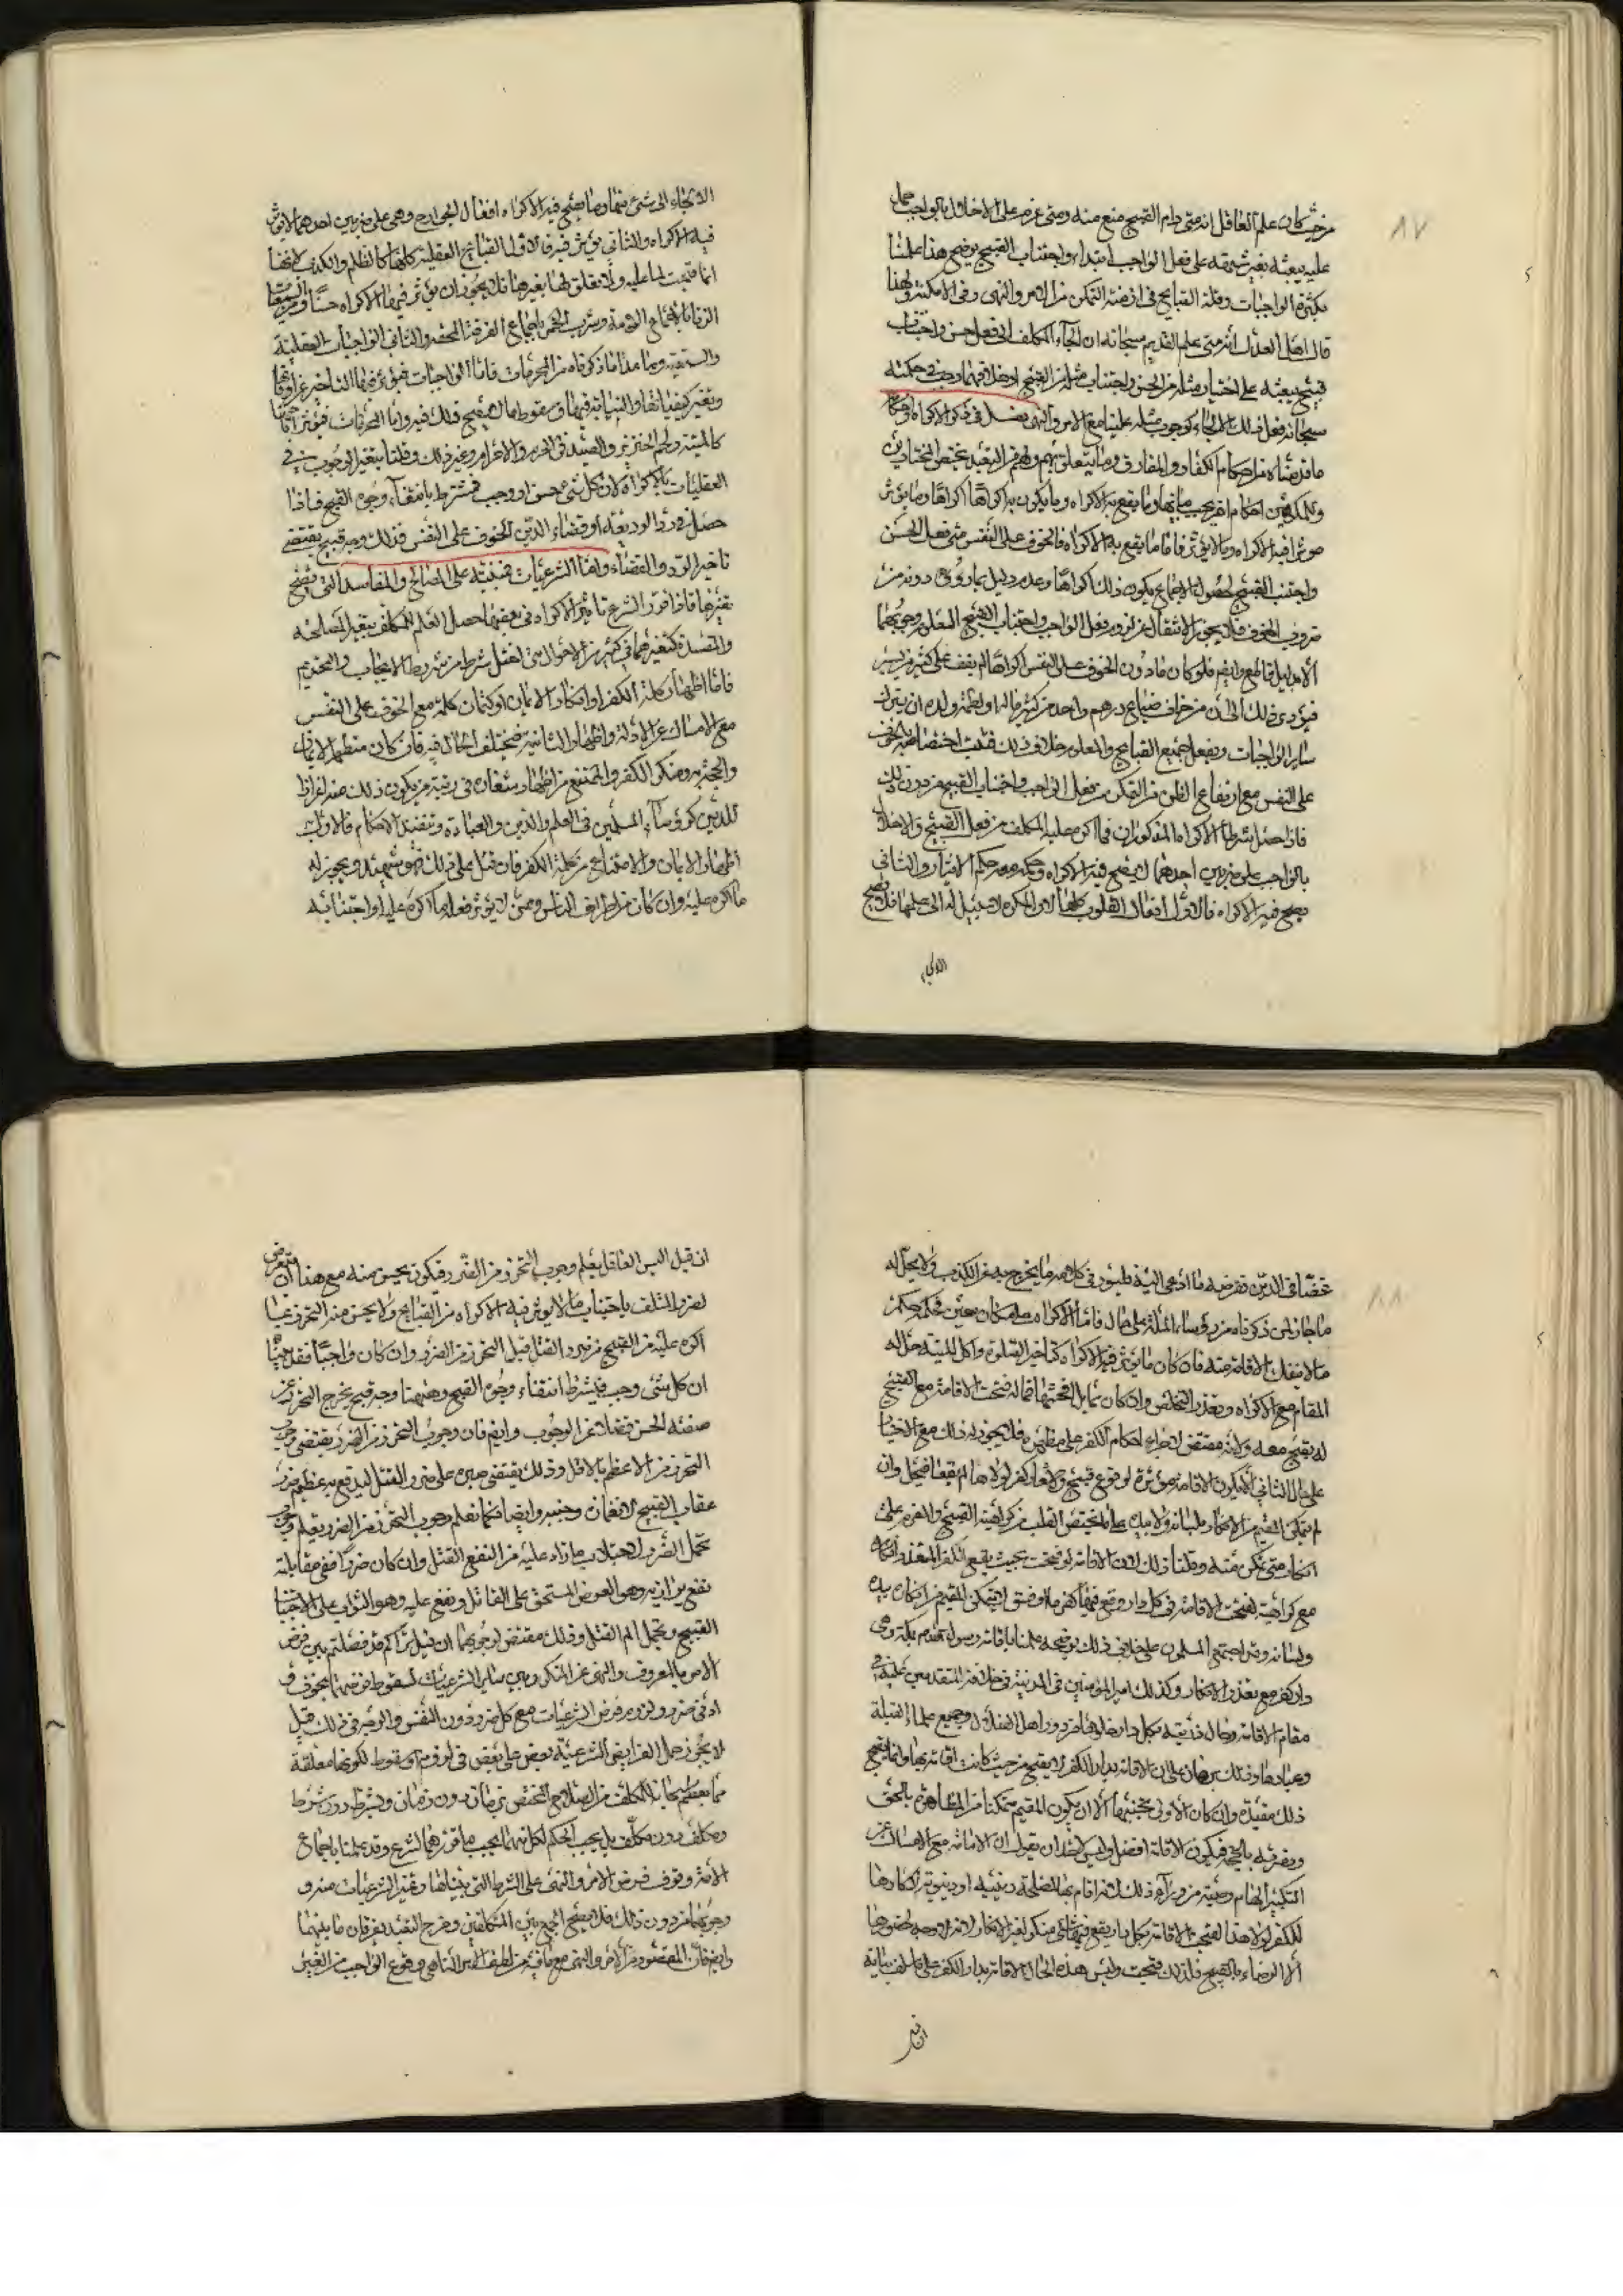 ٨٧
من حيث كان علم العاقل انه متى رام القبيح منع منه ومتى عزم على الاخلال بالواجب حمل
عليه يبعثه بغير شبهة على فعل الواجب ابتداء واجتناب القبيح يوضح هذا علمنا
بكثرة الواجبات وقلة القبايح في ازمنة التمكن من الامر والنهى وفى الامكنة ولهذا
قال اهل العدل انه متى علم القديم سبحانه ان الجآء المكلف الى فعل حسن واجتناب
قبيح يبعثه على اختيار مثله من الحسن واجتناب مثله من القبيح وجب في حكمته
سبحانه فعل ذلك الالجاء كوجوب مثله علينا مع الامر والنهى فصل في ذكر الاكراه واحكامه
ما قدمناه من احكام الكفار والمفارق وما يتعلق بهم ولهم من التعبد يختص المختارين
وللمكرهين احكام اخر يجب بيانها وما يقع به الاكراه وما يكون به اكراهًا وما يؤثر
فيه الاكراه وما لا يؤثر فاما ما يقع به الاكراه فالخوف على النفس متى فعل الحسن
واجتنب القبيح لحصول الاجماع بكون ذلك اكراهًا وعدم دليل بما دونه من
ضروب الخوف فلا يجوز الانتقال عن لزوم فعل الواجب واجتناب القبيح المعلوم وجوبهما
الا بدليل قاطع وايضا فلو كان ما دون الخوف على النفس اكراهًا لم يقف على كثير من يسير
فيؤدى ذلك الى ان من خاف ضياع درهم واحد من كثير ماله او لطمة ولده ان يترك
ساير الواجبات ويفعل جميع القبايح والمعلوم خلاف ذلك فثبت اختصاصه بالخوف
على النفس مع ارتفاع الظن من التمكن من فعل الواجب واجتناب القبيح من دون ذلك
فاذا حصل شرطا الاكراه المذكوران فما اكره عليه المكلف من فعل القبيح والاخلال
بالواجب على ضربين احدهما لا يصح فيه الاكراه وحكمه حكم الايثار والثانى
يصح فيه الاكراه فالاول افعال القلوب كلها لان المكره لا سبيل له الى علمها فلا يصح
الالجاء
الالجاء الى شئ منها وما يصح فيه الاكراه افعال الجوارح وهى على ضربين احدهما لا يؤثر
فيه الاكراه والثانى يؤثر فيه فالاول القبايح العقلية كلها كالظلم والكذب لانها
انما قبحت لما عليه ولا تعلق لها بغيرها فلا يجوز ان يؤثر فيها الاكراه حسنًا ومن السمعيات
الزنا باجماع الامة وشرب الخمر باجماع الفرقة المحقه والثانى الواجبات العقلية
والسمعية وما عدا ما ذكرناه من المحرمات فاما الواجبات فيؤثر فيها التاخير عن اوقاتها
وتغير كيفياتها والنيابة فيها وسقوط ما لا يصح ذلك فيه واما المحرمات فيؤثر اباحتها
كالميتة ولحم الخنزير والصيد في الحرم والاحرام وغير ذلك وقلنا بتغير الوجوب في
العقليات بالاكراه لان كل شئ حسن او وجب فمشترط بانتفاء وجوه القبح فاذا
حصل في رد الوديعة او قضاء الدين الخوف على النفس فذلك وجه قبح يقتضى
تاخير الرد والقضاء واما الشرعيات فمبنية على المصالح والمفاسد التى يصح
تغيرها فاذا قرر الشرع تاثير الاكراه في بعضها حصل العلم للمكلف بتغير المصلحة
والمفسدة كتغيرهما في كثير من الاحوال متى اختل شرط من شروط الايجاب والتحريم
فاما اظهار كلمة الكفر او انكار الايمان او كتمان كلمة مع الخوف على النفس
مع الامساك عن الاولة واظهار الثانية فيختلف الحال فيه فان كان مظهر الايمان
والحجة به ومنكر الكفر والممتنع من اظهار شعاره في رتبة من يكون ذلك منه اعزازا
للدين كرؤساء المسلمين في العلم والدين والعبادة وتنفيذ الاحكام فالاولى
اظهار الايمان والامتناع من كلمة الكفر فان قتل على ذلك فهو شهيد ويجوز له
ما اكره عليه وان كان من اطراف الناس وممن لا يؤثر فعله ما اكره عليه او اجتنابه
٨٨
غضًا في الدين ففرضه ما دعى اليه وليورى في كلامه ما يخرج به عن الكذب ولا يحل له
ما جاز لمن ذكرناه من رؤساء الملة على حال فاما الاكراه على مكان معين فحكمه حكم
ما لا ينفك الاقامة منه فان كان ما يؤثر فيه الاكراه كتاخير الصلوة واكل الميتة حل له
المقام مع الاكراه وتعذر التخلص وان كان مما لا
لا يقبح معه ولانه مقتض لاجراء احكام الكفر على مظهره فلا يجوز له ذلك مع الاختيار
على حال الثانى الا يكون الاقامة مؤثرة لوقوع قبيح
لم يتمكن المقيم من الانكار بلسانه ولا بيده
انكاره متى تمكن منه وقلنا ذلك لان الاقامة لو قبحت بحيث يقع الكفر المتعذر انكاره
مع كراهيته لقبحت الاقامة في كل دار وقع فيها كفر ما او فسق لا يتمكن المقيم من انكاره بيده
ولسانه وقد اجمع المسلمون على خلاف ذلك يوضحه علمنا باقامة رسول الله بمكة وهى
دار كفر مع تعذر الانكار وكذلك امير المؤمنين في المدينة في خلافة المتقدمين عليه
مقام الاقامة وحال ذريته بكل دار حلوها من دور اهل الضلال وجميع علماء القبلة
وعبادها وذلك برهان على ان الاقامة بدار الكفر لا يقبح من حيث كانت اقامة بها وانما يقبح
ذلك مقيدة وان كان الاولى تجنبها الا ان يكون المقيم متمكنا من المظاهرة بالحق
ومعرفته بالحجة فيكون الاقامة افضل وليس لاحد ان يقول ان الاقامة مع الامساك عن
النكير ايهام
للكفر لولا هذا لقبحت الاقامة بكل دار يقع فيها
الا الرضاء بالقبيح فلذلك قبحت وليس هذه الحال الاقامة بدار الكفر على ما سلف بيانه
ان قيل
ان قيل اليس العاقل يعلم وجوب التحرز من الضرر فكيف يحسن منه مع هذا ان يتعرض
لضرر التلف باجتناب ما لا يؤثر فيه الاكراه من القبايح ولا يحسن منه التحرز بما
اكره عليه من القبيح من ضرر القتل قيل التحرز من الضرر وان كان واجبًا فقد بينا
ان كل شئ وجب فيشترط انتفاء وجوه القبح وهيهنا وجه قبح يخرج التحرز عن
صفة الحسن فضلا عن الوجوب وايضا فان وجوب التحرز من الضرر يقتضى وجوب
التحرز من الاعظم بالاقل وذلك يقتضى صبره على ضرر القتل ليدفع به عظيم ضرر
عقاب القبيح وايضا فكما نعلم وجوب التحرز من الضرر يعلم وجوب
تحمل الضرر لاجتلاب ما زاد عليه من النفع القتل وان كان ضررا ففى مقابلته
نفع يوازيه وهو العوض المستحق على القاتل ونفع عليه وهو الثواب على اجتناب
القبيح وتحمل الم القتل وذلك مقتض لوجوبهما ان قيل فراكم قد فصلتم بين فرض
الامر بالمعروف والنهى عن المنكر وبين ساير الشرعيات لسقوط فرضهما بخوف
ادنى ضرر ولزوم فرض الشرعيات مع كل ضرر دون النفس والوجه في ذلك قيل
لا يجوز حمل الفرايض الشرعية بعض على بعض في لزوم او سقوط لكونها معلقة
بما يعلمه سبحانه للمكلف من الصلاح المختص بزمان دون زمان وبشرط دون شرط
ومكلف دون مكلف بل يجب الحكم لكل منهما بحسب ما قرره الشرع وقد علمنا باجماع
الامة وقوف فرض الامر والنهى على الشرط التى بيناها وتعين الشرعيات
وجوبها من دون ذلك فلا يصح الجمع بين المتكلفين
وايضا فان المقصود من الامر والنهى وقوع الواجب من الغير